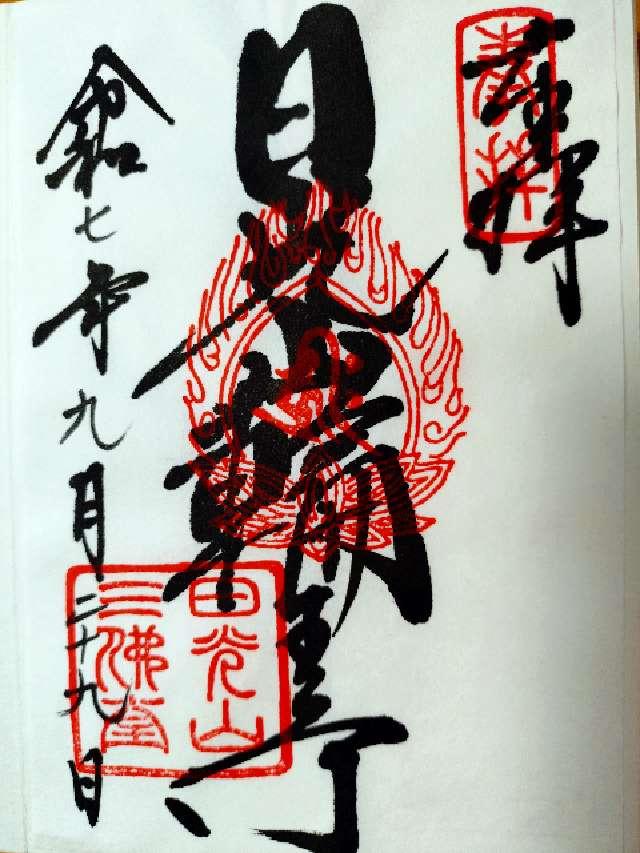 奉拝
日光輪王寺
日光山
三佛堂
令和七年九月二十九日